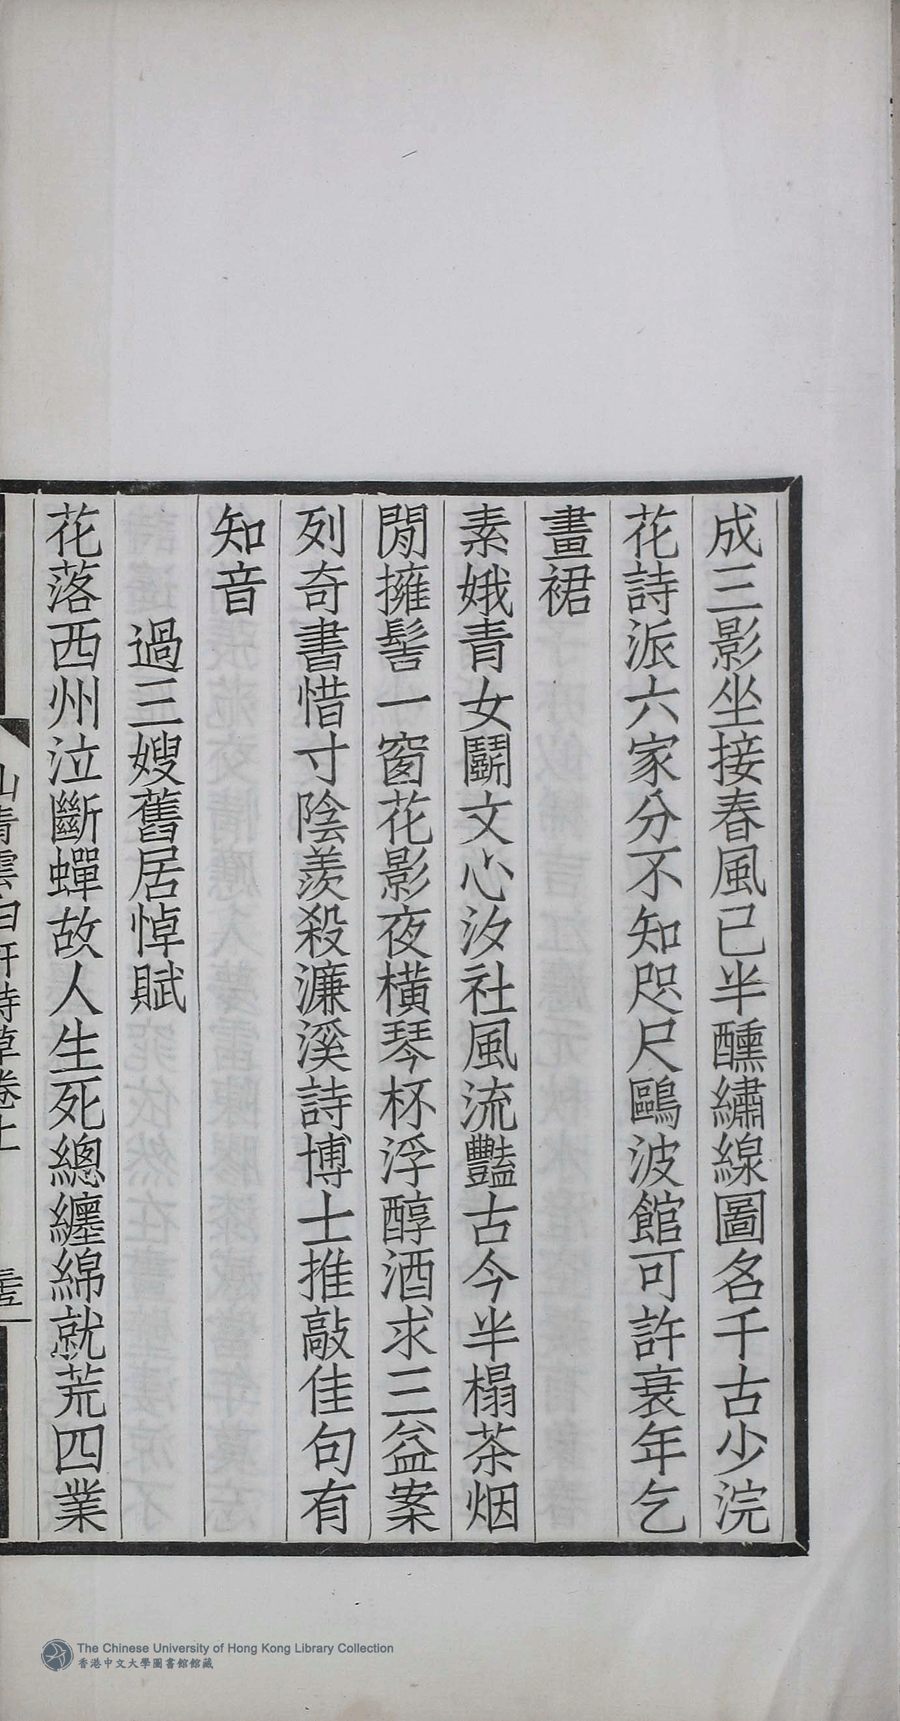 成三影坐接春風已半醺繡線圖名千古少浣
花詩派六家分不知咫尺鷗波館可許衰年乞
畫裙
素娥青女鬭文心汐社風流豔古今半榻茶烟
閒擁髻一窗花影夜橫琴杯浮醇酒求三益案
列奇書惜寸陰羨殺濂溪詩博士推敲佳句有
知音
過三嫂舊居悼賦
花落西州泣斷蟬故人生死總纏綿就荒四業
山青雲白軒詩草卷上
The Chinese University of Hong Kong Library Collection
香港中文大學圖書館館藏